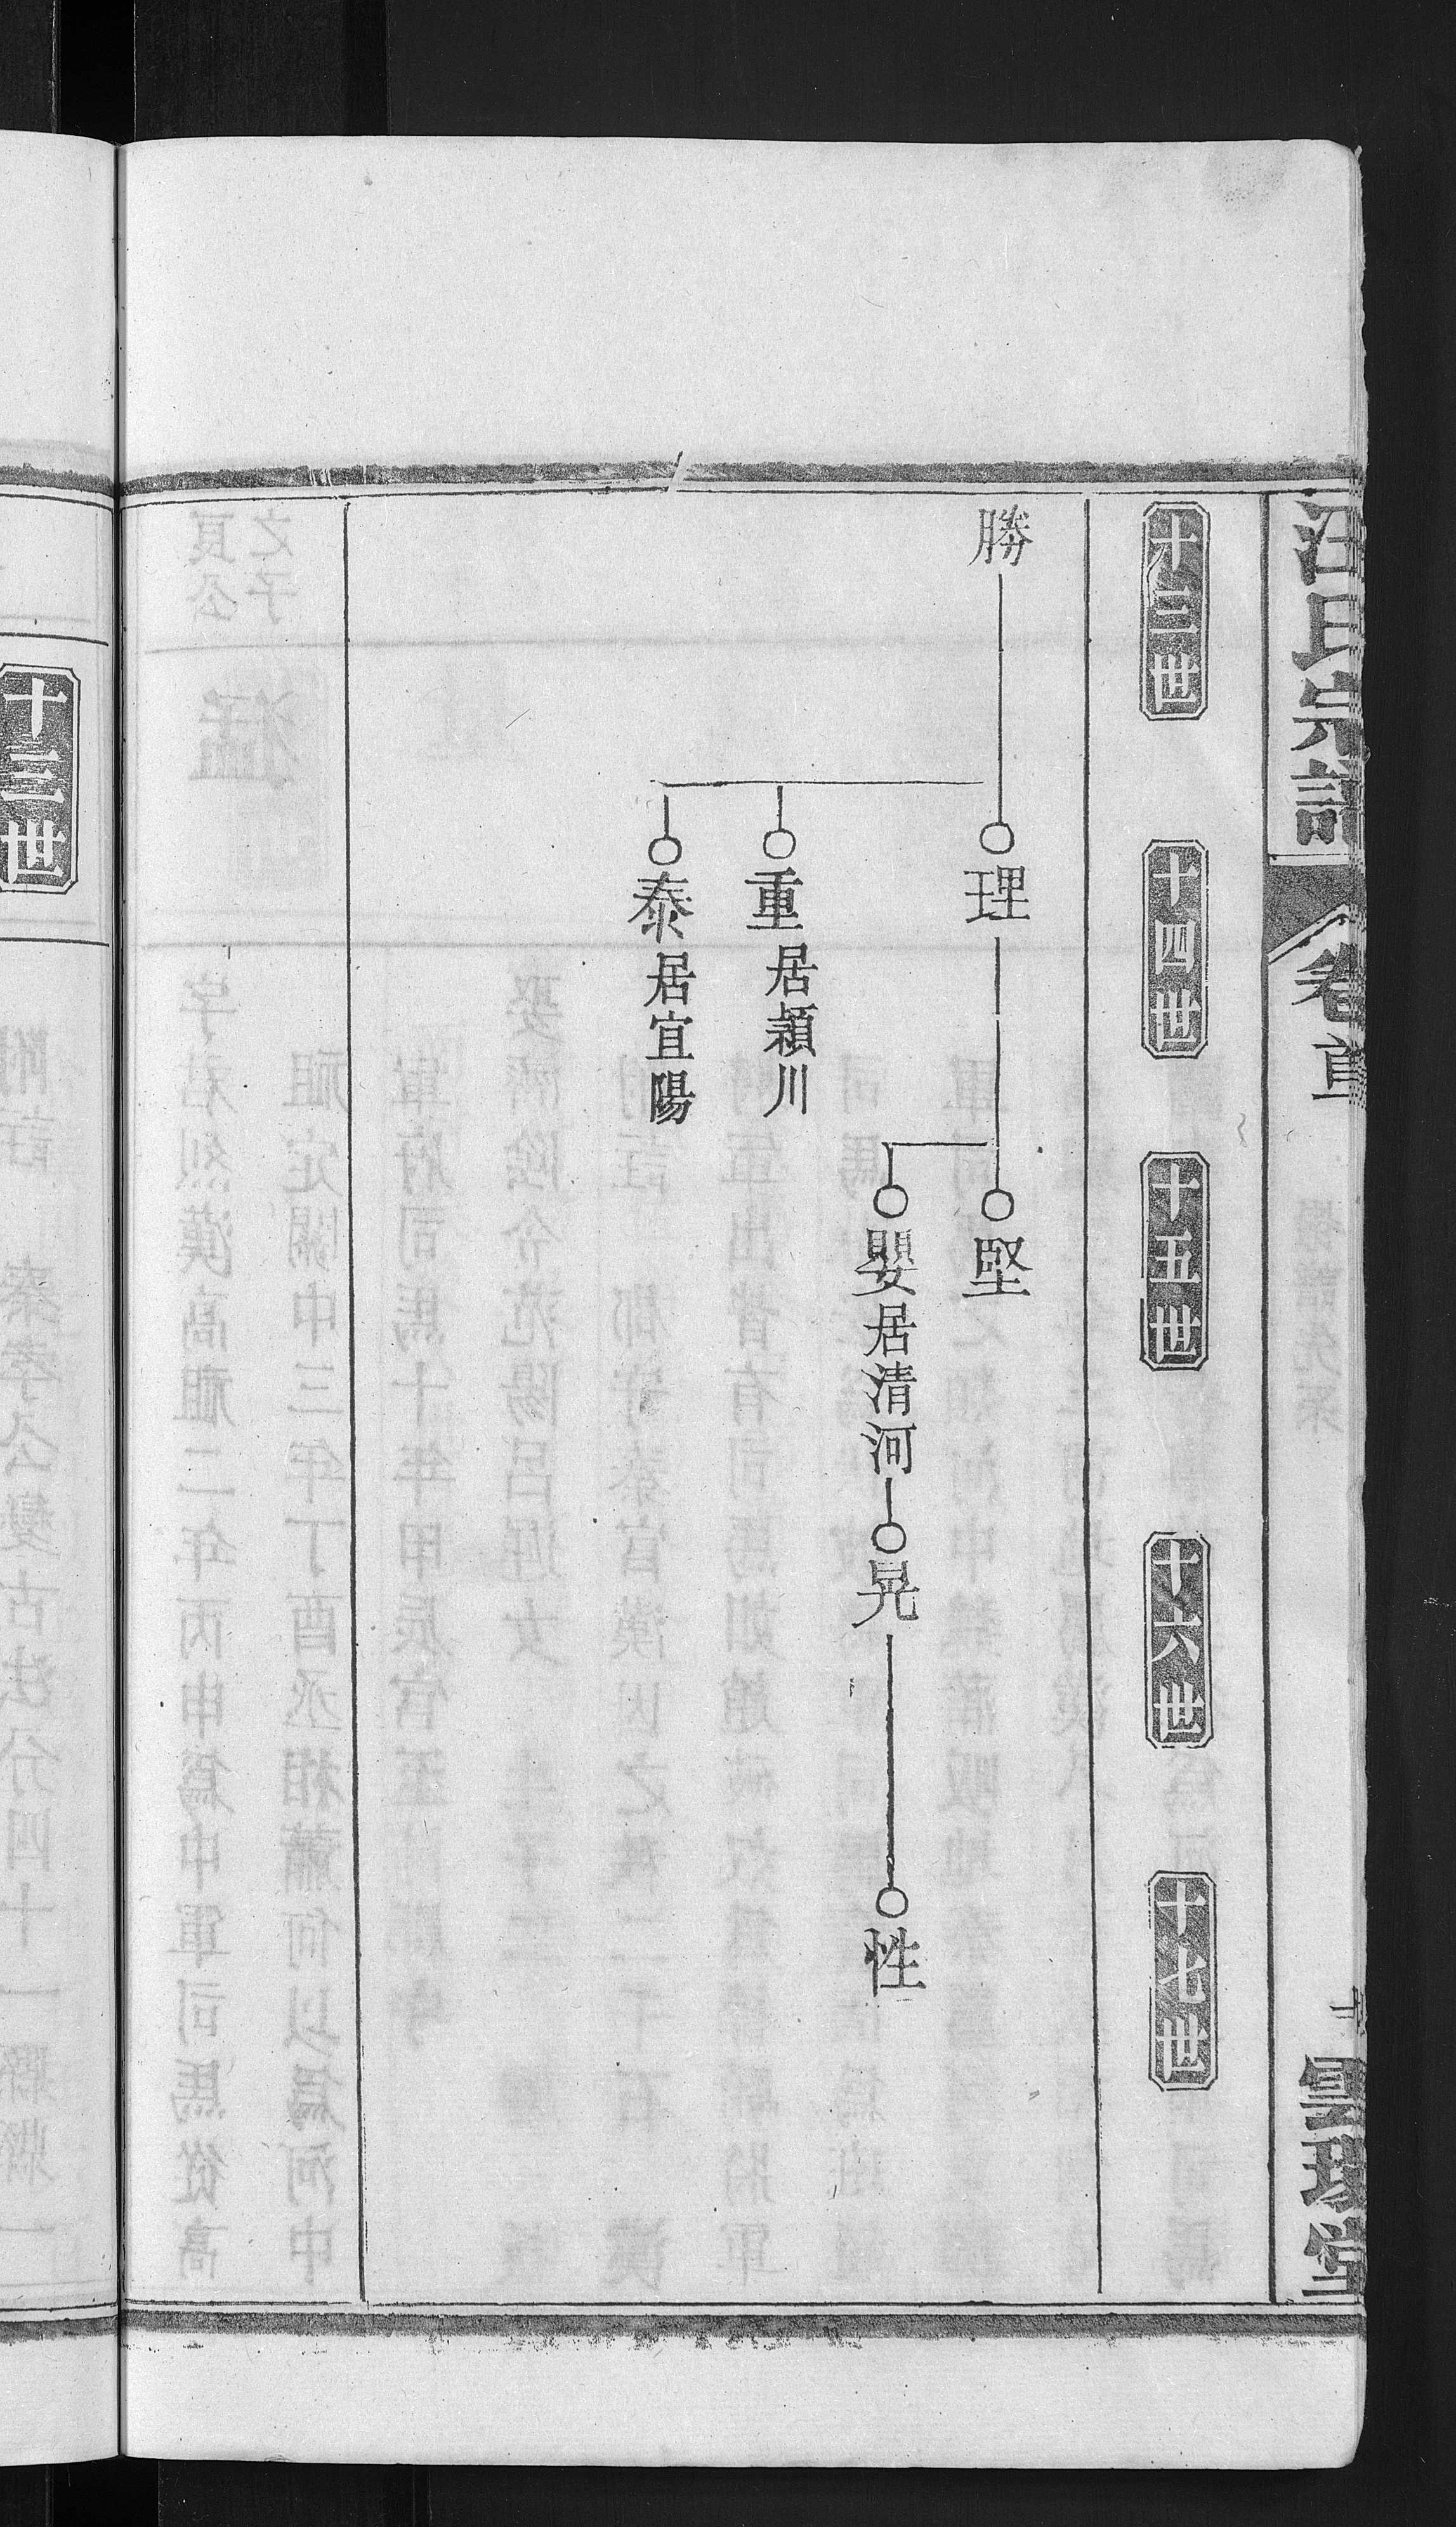 汪氏宗譜
卷首
十三世
十四世
十五世
十六世
十七世
勝
理
堅
重居潁川
嬰居清河
晃
性
泰居宜陽
十三世